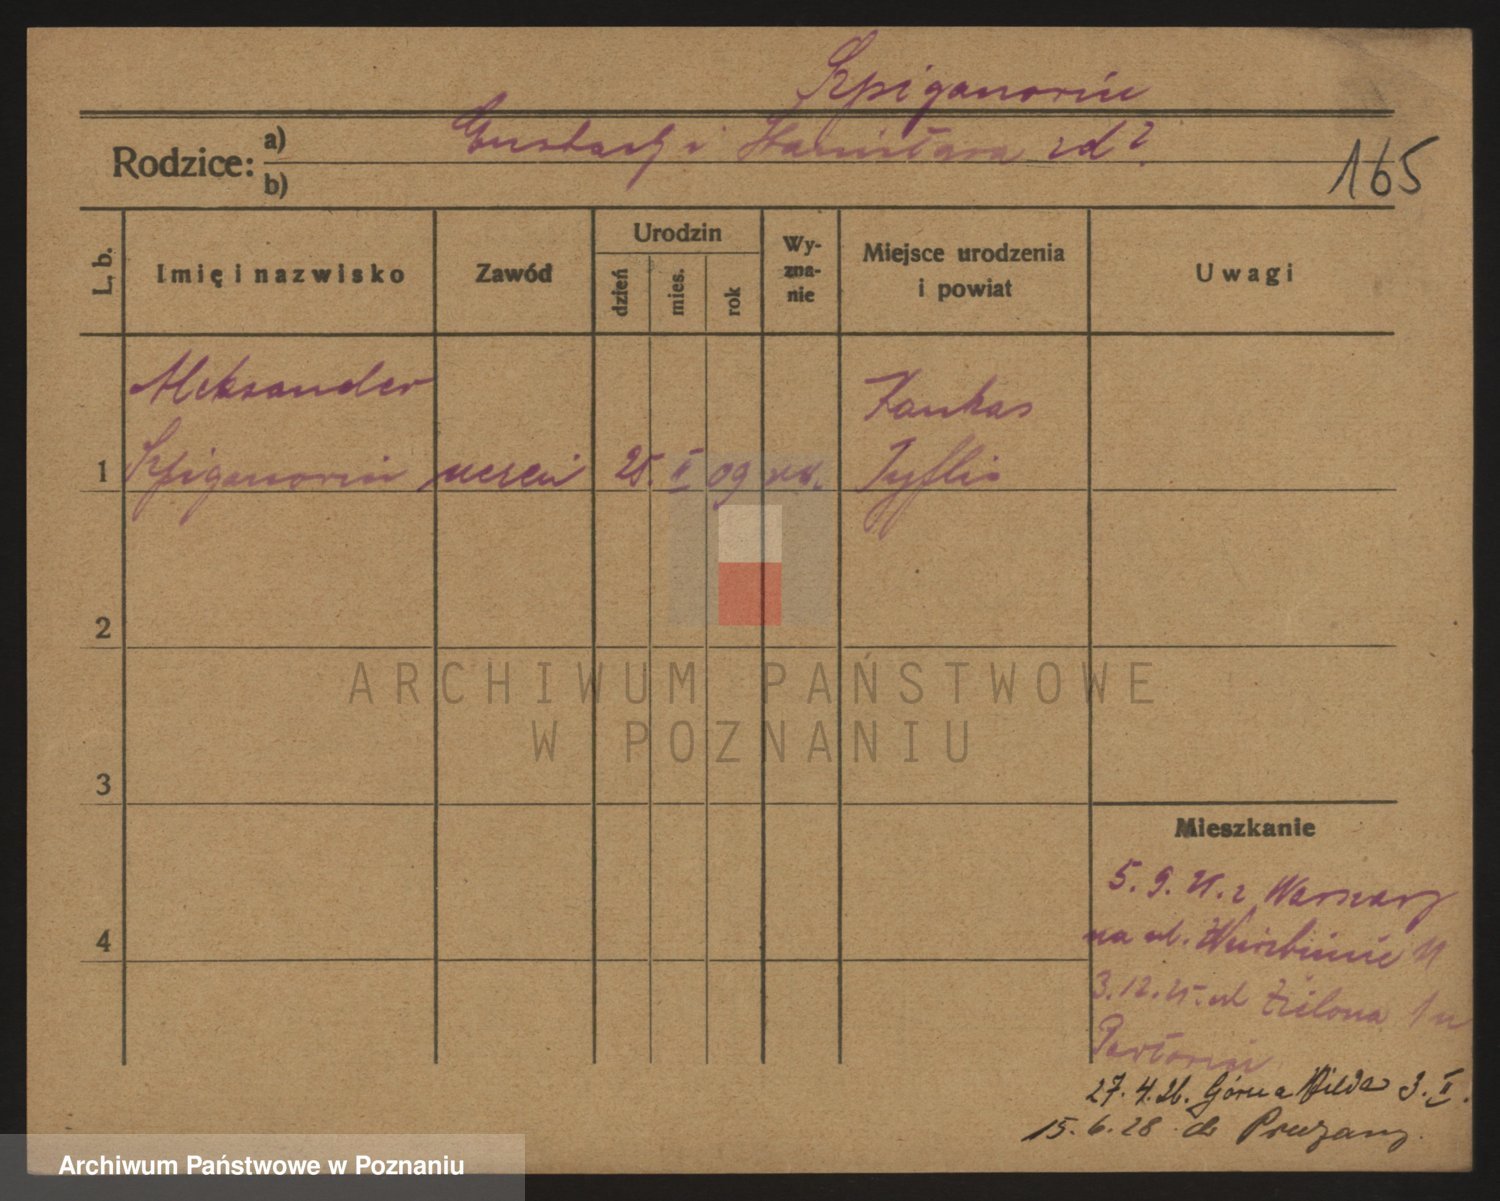 Szpiganowicz
Rodzice:
a) Eustachy i Stanisława zd ?
b)
165
L. b.
Imię i nazwisko
Zawód
Urodzin
dzień
mies.
rok
Wy-
zna-
nie
Miejsce urodzenia
i powiat
Uwagi
Aleksander
Kaukas
1 Szpiganowicz uczeń 25. II 09 rk. Tyflis
2
3
4
ARCHIWUM PAŃSTWOWE
W POZNANIU
Mieszkanie
5. 9. 25. z Warszawy
na ul. 11
3.12.25. ul Zielona 1 u
27. 4. 26. Górna Wilda 3. II.
15. 6. 28 do Pruzany.
Archiwum Państwowe w Poznaniu